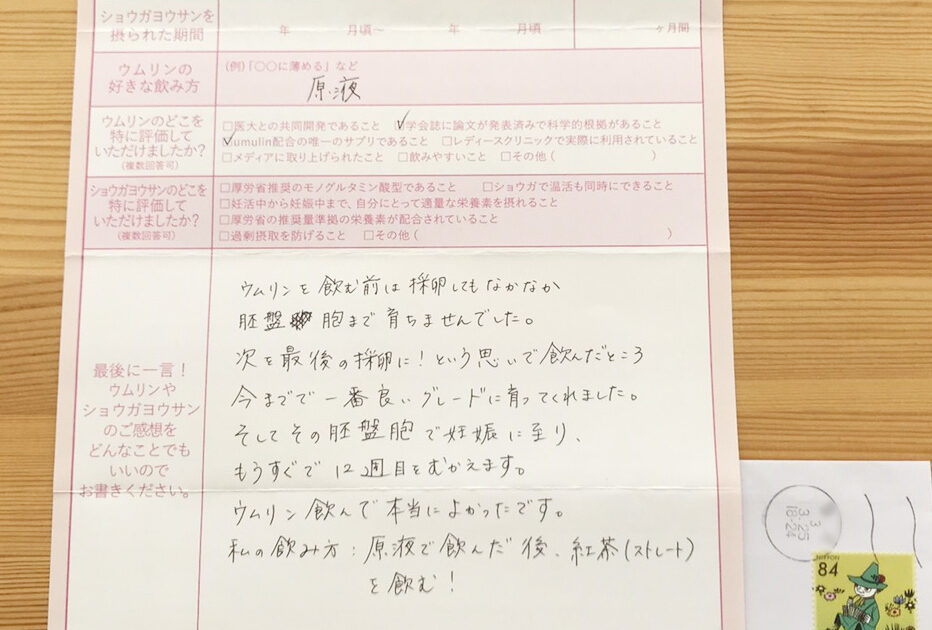 ショウガヨウサンを
摂られた期間
年 月頃〜 年 月頃 ヶ月間
ウムリンの
好きな飲み方
(例)「〇〇に薄める」など
原液
ウムリンのどこを
特に評価して
いただけましたか?
(複数回答可)
□医大との共同開発であること ☑学会誌に論文が発表済みで科学的根拠があること
☑umulin配合の唯一のサプリであること □レディースクリニックで実際に利用されていること
□メディアに取り上げられたこと □飲みやすいこと □その他( )
ショウガヨウサンのどこを
特に評価して
いただけましたか?
(複数回答可)
□厚労省推奨のモノグルタミン酸型であること □ショウガで温活も同時にできること
□妊活中から妊娠中まで、自分にとって適量な栄養素を摂れること
□厚労省の推奨量準拠の栄養素が配合されていること
□過剰摂取を防げること □その他( )
最後に一言!
ウムリンや
ショウガヨウサン
のご感想を
どんなことでも
いいので
お書きください。
ウムリンを飲む前は採卵してもなかなか
胚盤胞まで育ちませんでした。
次を最後の採卵に!という思いで飲んだところ
今までで一番良いグレードに育ってくれました。
そしてその胚盤胞で妊娠に至り、
もうすぐで12週目をむかえます。
ウムリン飲んで本当によかったです。
私の飲み方:原液で飲んだ後、紅茶(ストレート)
を飲む!
3
3.25
18-24
NIPPON
84